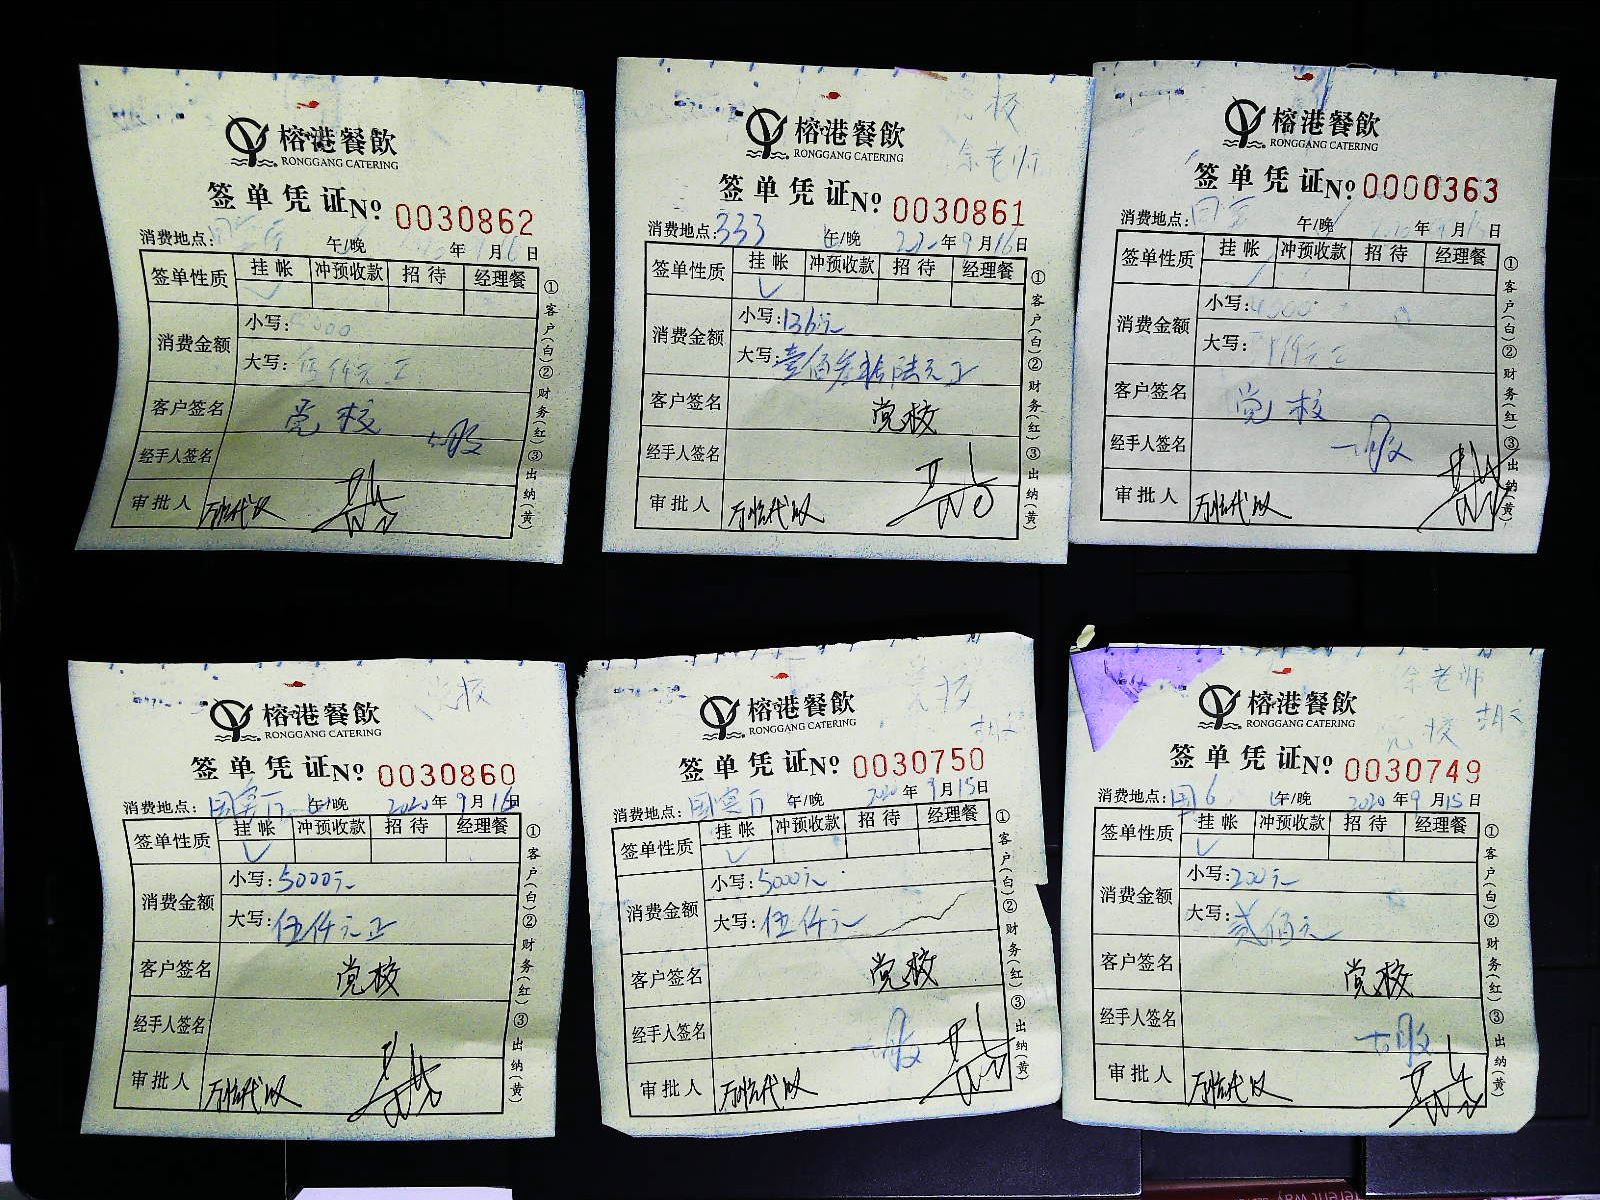 榕港餐飲
RONGGANG CATERING
签单凭证 № 0030862
消费地点: 午/晚 年 月 日
签单性质 挂帐 冲预收款 招待 经理餐
消费金额 小写: 5000
大写: 伍仟元正
客户签名 党校
经手人签名
审批人
①客户(白)②财务(红)③出纳(黄)
党校
余老师
榕港餐飲
RONGGANG CATERING
签单凭证 № 0030861
消费地点: 333 午/晚 年 9 月 16 日
签单性质 挂帐 冲预收款 招待 经理餐
消费金额 小写: 136元
大写: 壹佰叁拾陆元正
客户签名 党校
经手人签名
审批人
①客户(白)②财务(红)③出纳(黄)
榕港餐飲
RONGGANG CATERING
签单凭证 № 0000363
消费地点: 午/晚 年 月 日
签单性质 挂帐 冲预收款 招待 经理餐
消费金额 小写:
大写:
客户签名 党校
经手人签名
审批人
①客户(白)②财务(红)③出纳(黄)
党校
榕港餐飲
RONGGANG CATERING
签单凭证 № 0030860
消费地点: 国宾厅 午/晚 2020 年 9 月 16 日
签单性质 挂帐 冲预收款 招待 经理餐
消费金额 小写: 5000元
大写: 伍仟元正
客户签名 党校
经手人签名
审批人
①客户(白)②财务(红)③出纳(黄)
党校
榕港餐飲
RONGGANG CATERING
签单凭证 № 0030750
消费地点: 国宾厅 午/晚 2020 年 9 月 15 日
签单性质 挂帐 冲预收款 招待 经理餐
消费金额 小写: 5000元
大写: 伍仟元
客户签名 党校
经手人签名
审批人
①客户(白)②财务(红)③出纳(黄)
余老师
党校
榕港餐飲
RONGGANG CATERING
签单凭证 № 0030749
消费地点: 国6 午/晚 2020 年 9 月 15 日
签单性质 挂帐 冲预收款 招待 经理餐
消费金额 小写: 200元
大写: 贰佰元
客户签名 党校
经手人签名
审批人
①客户(白)②财务(红)③出纳(黄)